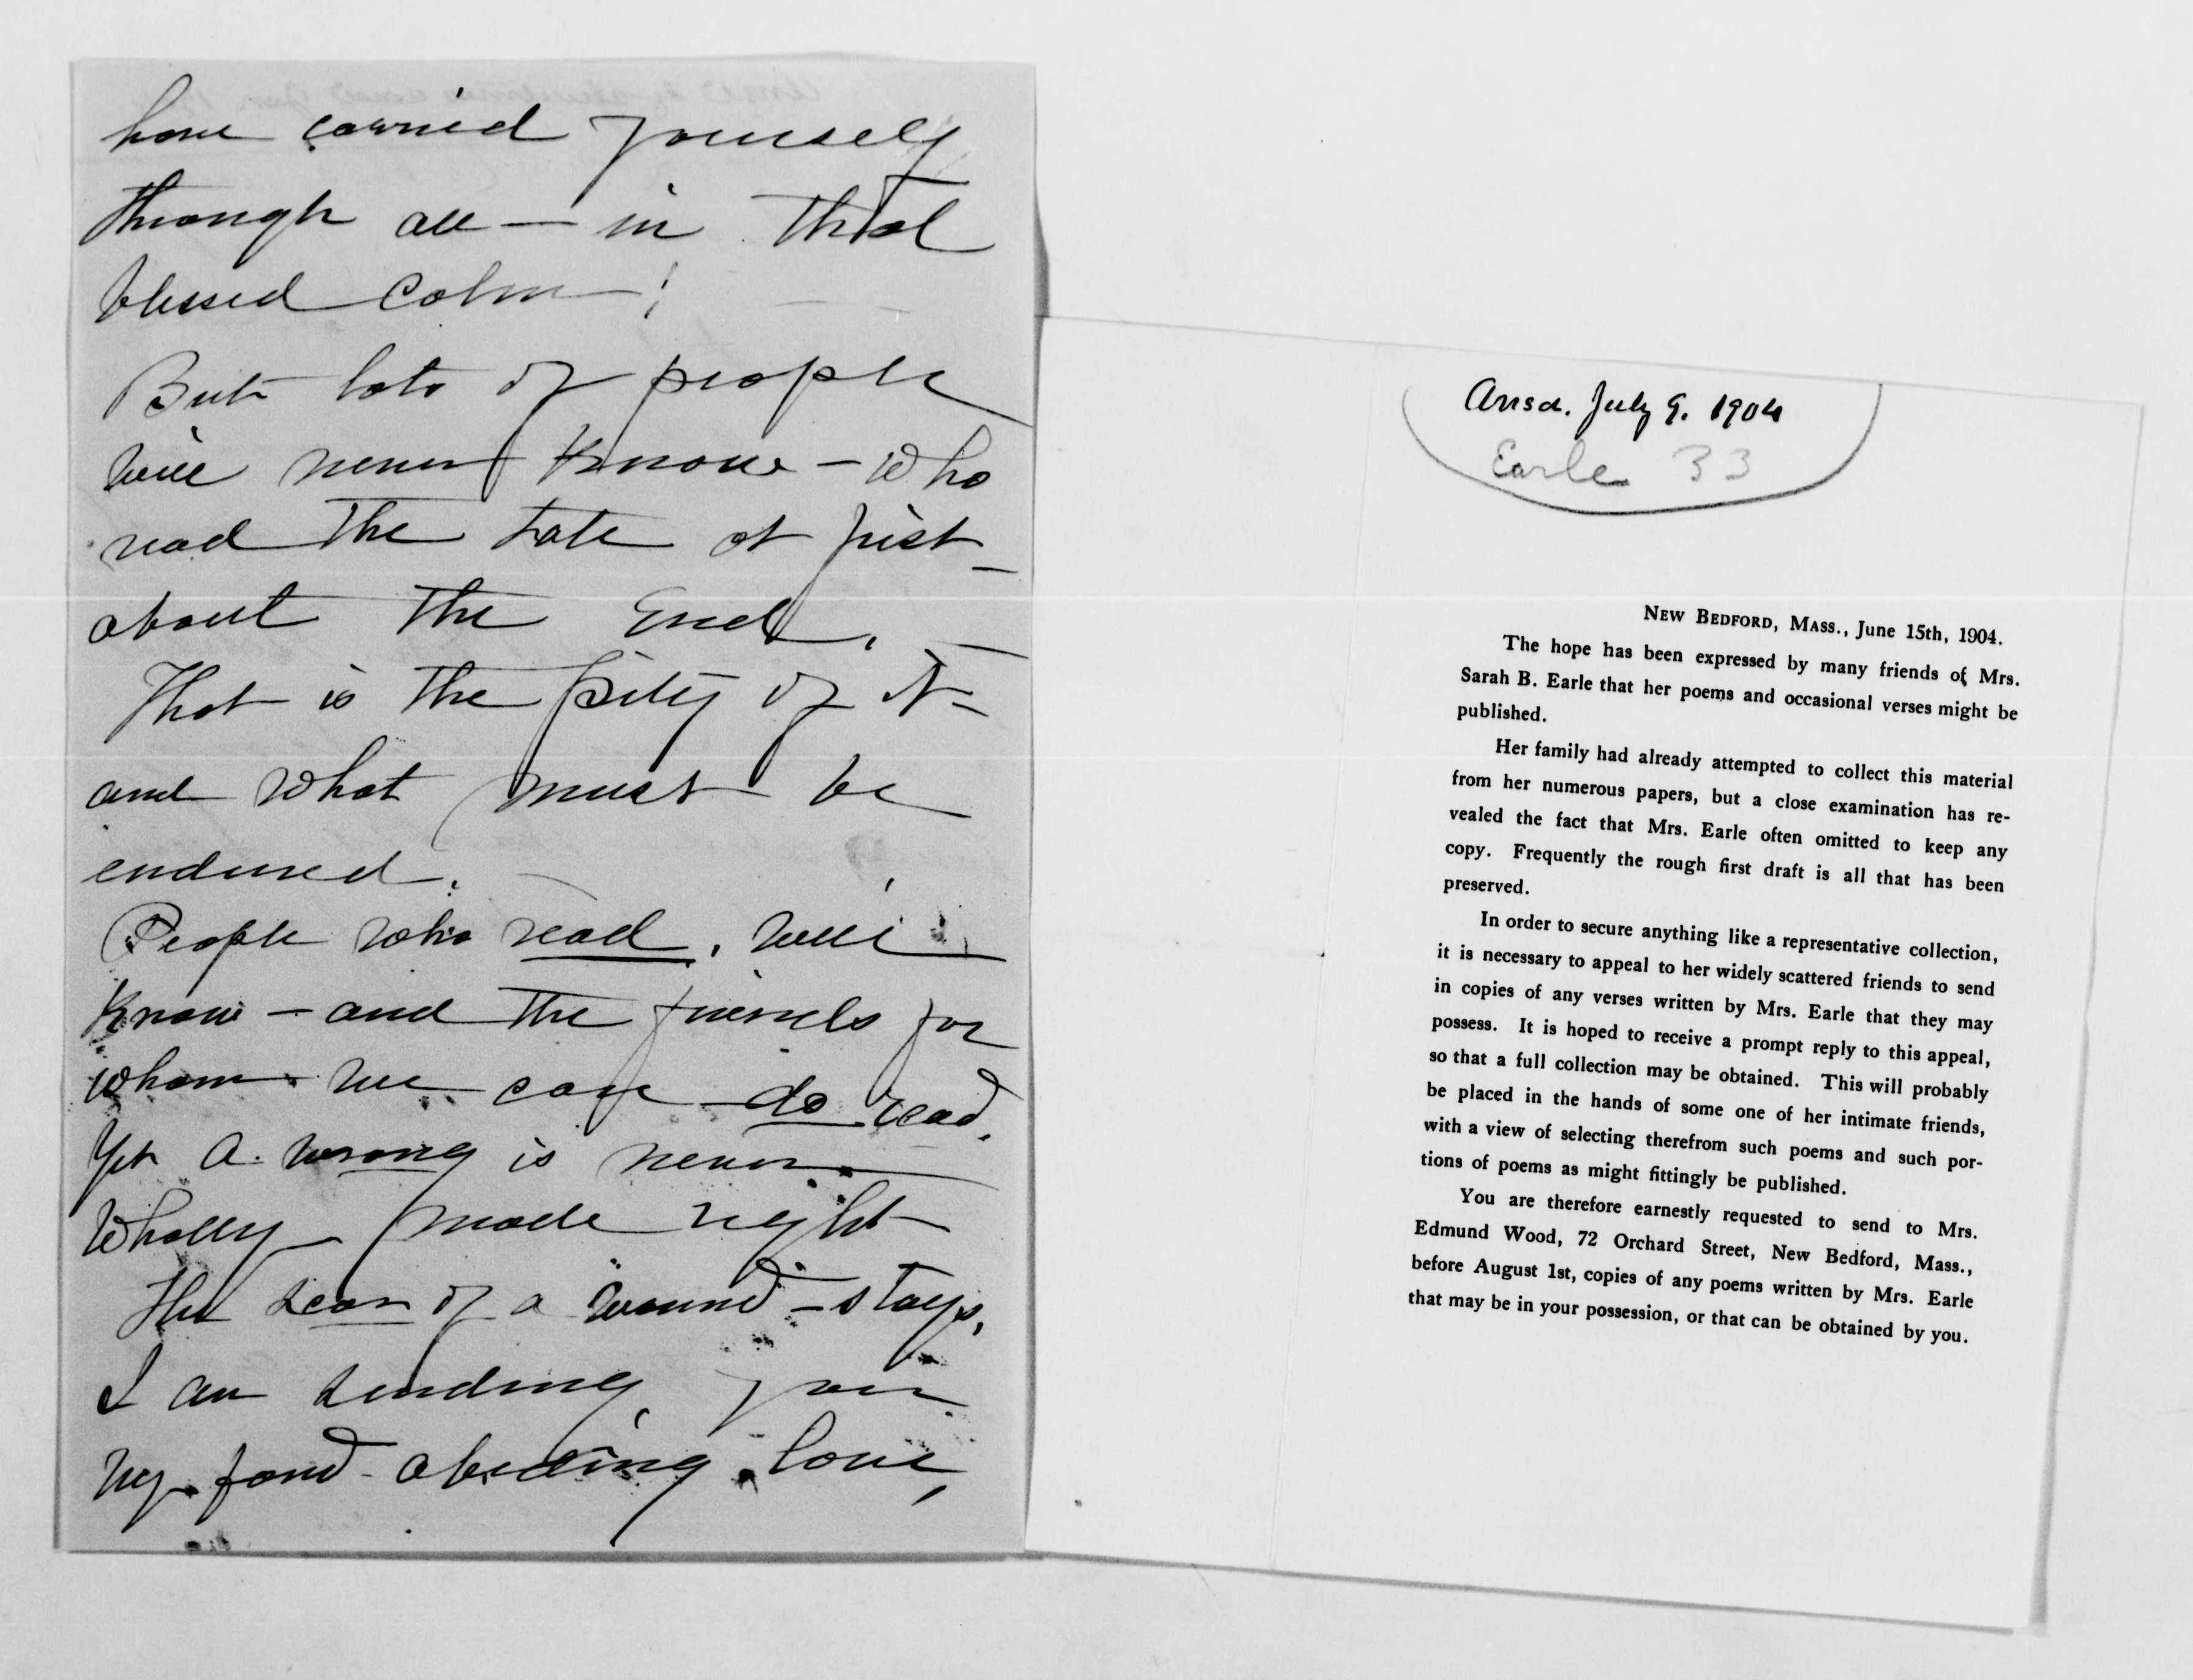 have carried yourself
through all — in that
blessed calm — !
But lots of people
will never know — who
read the tale at first —
about the End. —
That is the pity of it —
and what must be
endured. —
People who read, will
know — and the friends for
whom we care do read.
Yet a wrong is never
wholly made right
The scar of a wound — stays.
I am sending you
my fond abiding love,
Ansd. July 9. 1904
Earle 33
NEW BEDFORD, MASS., June 15th, 1904.
The hope has been expressed by many friends of Mrs.
Sarah B. Earle that her poems and occasional verses might be
published.
Her family had already attempted to collect this material
from her numerous papers, but a close examination has re-
vealed the fact that Mrs. Earle often omitted to keep any
copy. Frequently the rough first draft is all that has been
preserved.
In order to secure anything like a representative collection,
it is necessary to appeal to her widely scattered friends to send
in copies of any verses written by Mrs. Earle that they may
possess. It is hoped to receive a prompt reply to this appeal,
so that a full collection may be obtained. This will probably
be placed in the hands of some one of her intimate friends,
with a view of selecting therefrom such poems and such por-
tions of poems as might fittingly be published.
You are therefore earnestly requested to send to Mrs.
Edmund Wood, 72 Orchard Street, New Bedford, Mass.,
before August 1st, copies of any poems written by Mrs. Earle
that may be in your possession, or that can be obtained by you.